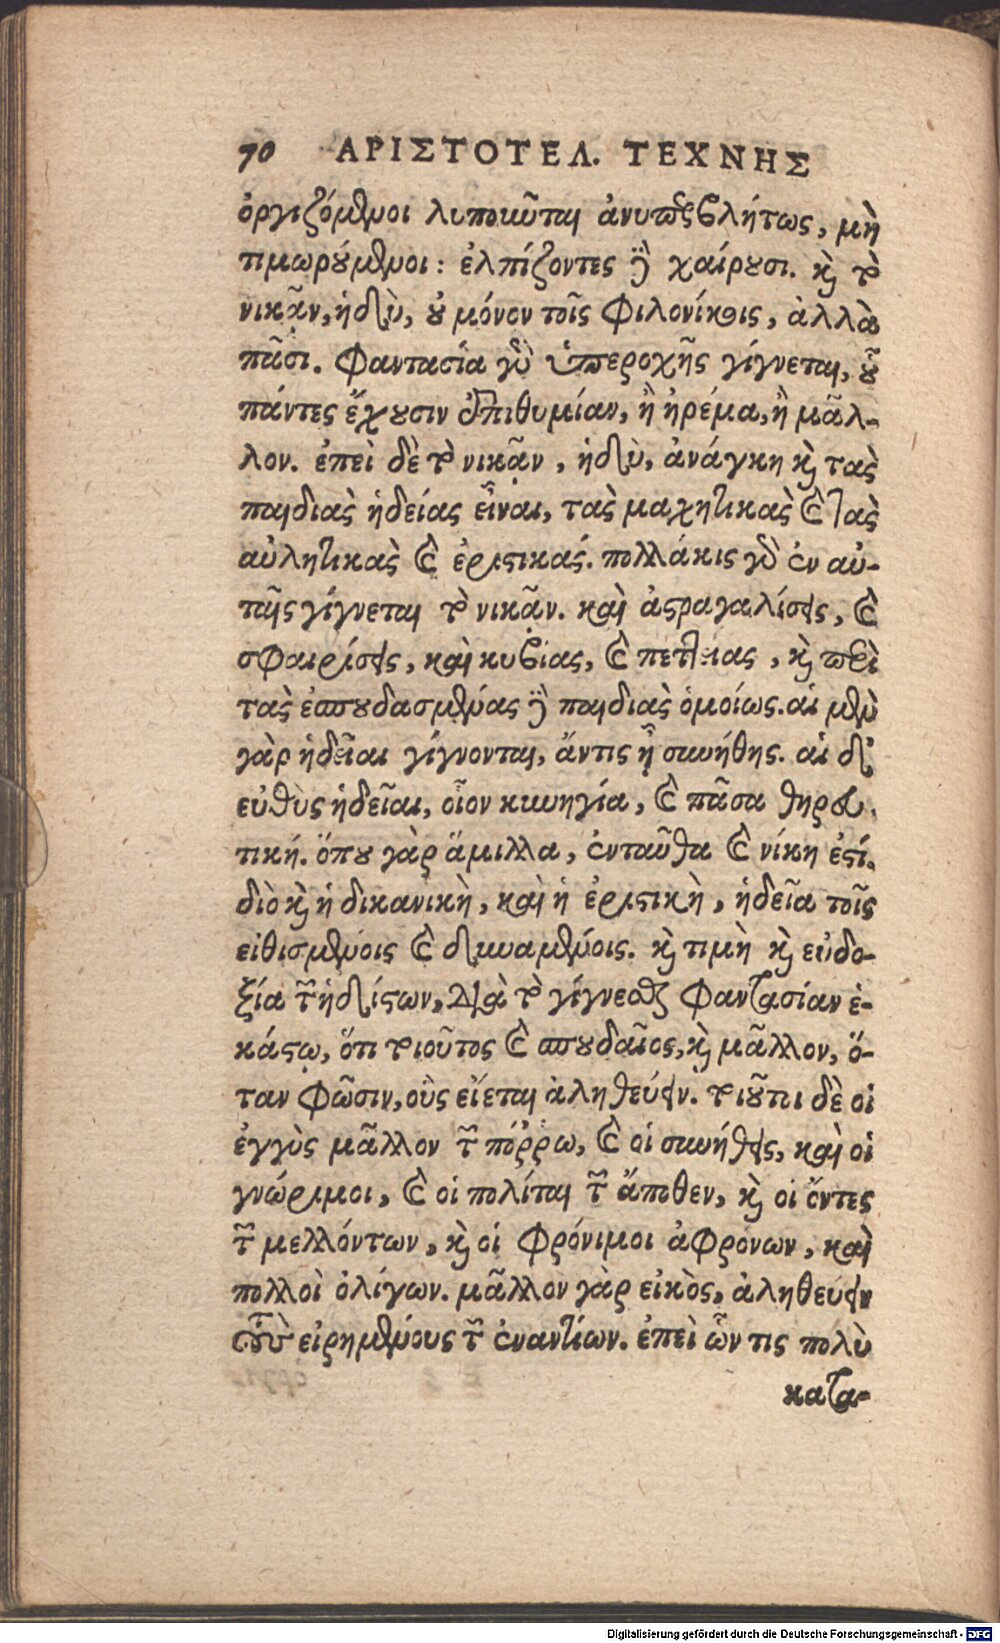 70 ΑΡΙΣΤΟΤΕΛ. ΤΕΧΝΗΣ
ὀργιζόμενοι λυποῦνται ἀνυπερβλήτως, μὴ
τιμωρούμενοι: ἐλπίζοντες δὲ χαίρουσι. καὶ τὸ
νικᾷν, ἡδὺ, οὐ μόνον τοῖς φιλονίκοις, ἀλλὰ
πᾶσι. φαντασία γὰρ ὑπεροχῆς γίγνεται, οὗ
πάντες ἔχουσιν ἐπιθυμίαν, ἢ ἠρέμα, ἢ μᾶλ-
λον. ἐπεὶ δὲ τὸ νικᾷν, ἡδὺ, ἀνάγκη καὶ τὰς
παιδιὰς ἡδείας εἶναι, τὰς μαχητικὰς καὶ τὰς
αὐλητικὰς καὶ ἐριστικάς. πολλάκις γὰρ ἐν αὐ-
ταῖς γίγνεται τὸ νικᾷν. καὶ ἀστραγαλίσεις, καὶ
σφαιρίσεις, καὶ κυβείας, καὶ πεττείας, καὶ περὶ
τὰς ἐσπουδασμένας δὲ παιδιὰς ὁμοίως. αἱ μὲν
γὰρ ἡδεῖαι γίγνονται, ἄντις ᾖ συνήθης. αἱ δ'
εὐθὺς ἡδεῖαι, οἷον κυνηγία, καὶ πᾶσα θηρευ-
τική. ὅπου γὰρ ἅμιλλα, ἐνταῦθα καὶ νίκη ἐστί.
διὸ καὶ ἡ δικανικὴ, καὶ ἡ ἐριστικὴ, ἡδεῖα τοῖς
εἰθισμένοις καὶ δυναμένοις. καὶ τιμὴ καὶ εὐδο-
ξία τῶν ἡδίστων, διὰ τὸ γίγνεσθαι φαντασίαν ἑ-
κάστῳ, ὅτι τοιοῦτος καὶ σπουδαῖος, καὶ μᾶλλον, ὅ-
ταν φῶσιν, οὓς οἴεται ἀληθεύειν. τοιοῦτοι δὲ οἱ
ἐγγὺς μᾶλλον τῶν πόῤῥω, καὶ οἱ συνήθεις, καὶ οἱ
γνώριμοι, καὶ οἱ πολίται τῶν ἄποθεν, καὶ οἱ ὄντες
τῶν μελλόντων, καὶ οἱ φρόνιμοι ἀφρόνων, καὶ
πολλοὶ ὀλίγων. μᾶλλον γὰρ εἰκὸς, ἀληθεύειν
τοὺς εἰρημένους τῶν ἐναντίων. ἐπεὶ ὧν τις πολὺ
κατα-
Digitalisierung gefördert durch die Deutsche Forschungsgemeinschaft - DFG